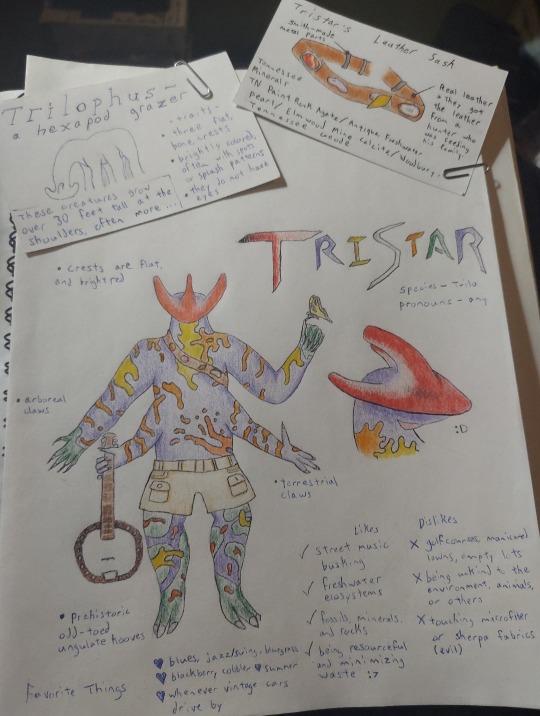 Trilophus -
a hexapod grazer
• traits -
three flat,
bone crests
• brightly colored,
often with spots
or splash patterns
• they do not have
eyes
These creatures grow
over 30 feet tall at the
shoulders, often more...
Tristar's Leather Sash
smith-made
metal parts
Real leather
- they got
the leather
from a
hunter who
was feeding
his family
Tennessee
Minerals
TN Paint Rock Agate/Antique Freshwater
pearl/Elmwood Mine Calcite/Woodbury,
Tennessee Geode
TRISTAR
species - Trilo
pronouns - any
• crests are flat,
and bright red
• arboreal
claws
:D
• terrestrial
claws
• Prehistoric
odd-toed
ungulate hooves
Likes
✓ street music
busking
✓ freshwater
ecosystems
✓ fossils, minerals,
and rocks
✓ being resourceful
and minimizing
waste :7
Dislikes
X golf courses, manicured
lawns, empty lots
X being unkind to the
environment, animals,
or others
X touching microfiber
or sherpa fabrics
(evil)
Favorite Things
♥ blues, jazz/swing, bluegrass
♥ blackberry cobbler ♥ summer
♥ whenever vintage cars
drive by